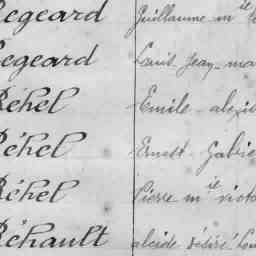 Legeard Guillaume m ie
Legeard Louis Jean ma
Réhel Emile alexi
Réhel Ernest Gabrie
Réhel Pierre m ie victo
Réhault alcide désiré Lou